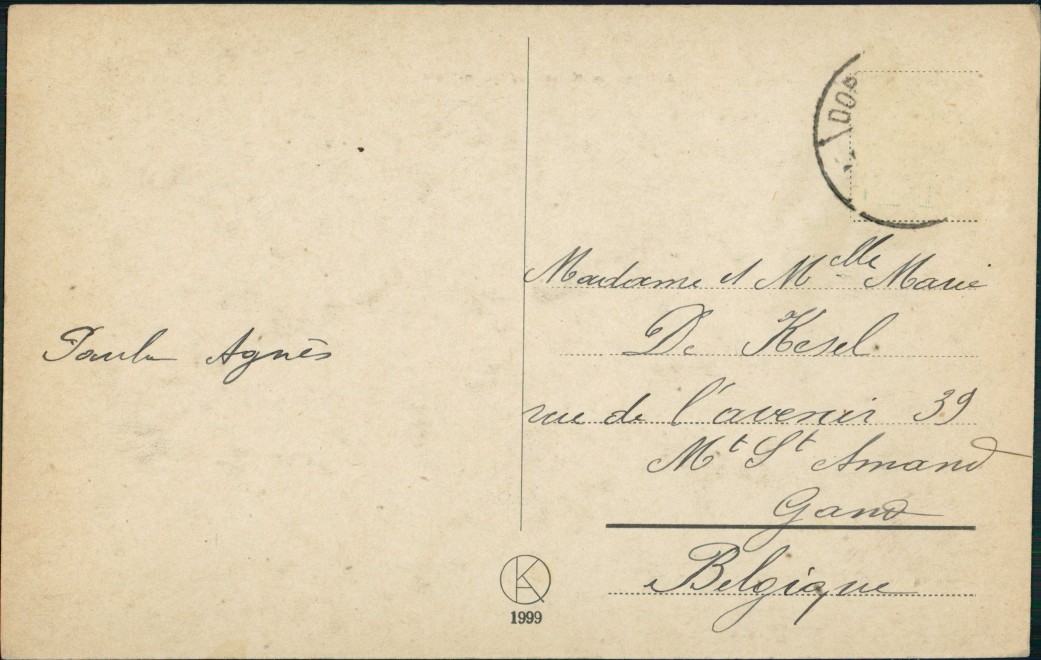 DOO
Madame et Melle Marie
De Kesel
Paula Agnès
rue de l'avenir 39
Mt St Amand
Gand
Belgique
KA
1999